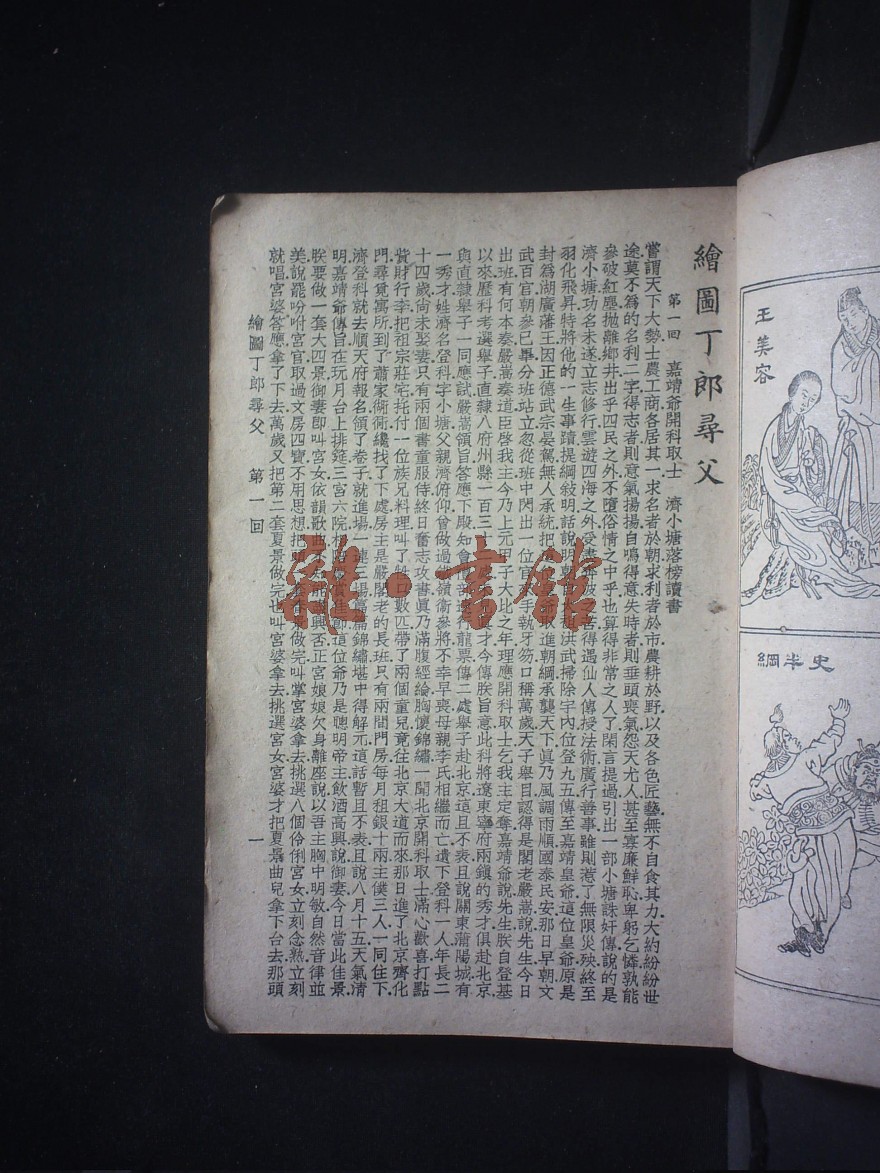 繪圖丁郎尋父
第一回 嘉靖爺開科取士 濟小塘落榜讀書
嘗謂天下大勢士農工商各居其一求名者於朝求利者於市農耕於野以及各色匠藝無不自食其力大約紛紛世
途莫不為的名利二字得志者則意氣揚揚自鳴得意失時者則垂頭喪氣怨天尤人甚至寡廉鮮恥卑躬乞憐孰能
參破紅塵拋離鄉井出乎四民之外不墮俗情之中乎也算得非常之人了閑言提過引出一部小塘誅奸傳說的是
濟小塘功名未遂立志修行雲遊四海之外受盡奔波之苦得遇仙人傳授法術廣行善事雖則惹了無限災殃終至
羽化飛昇特將他的一生事蹟提綱敍明話說明朝自洪武掃除宇內位登九五傳至嘉靖皇爺這位皇爺原是
封為湖廣藩王因正德武宗晏駕無人承統把進朝綱承襲天下真乃風調雨順國泰民安那日早朝文
武百官朝參已畢分班站立忽從班中閃出一位手執牙笏口稱萬歲天子舉目認得是閣老嚴嵩說先生今日
出班有何本奏嚴嵩奏道臣啓我主今乃上元甲子大比之年理應開科取士乞我主定奪嘉靖爺說先生朕自登基
以來歷科考選舉子直隸八府州縣一百三才今傳朕旨意此科將遼東寧府兩鎮的秀才俱赴北京
與直隸舉子一同應試嚴嵩領旨答應下殿知會龍票傳二處舉子赴北京這且不表且說關東蒲陽城有
一秀才姓濟名登科字小塘父親濟俯仰曾做過衛參將不幸早喪母親李氏相繼而亡遺下登科一人年長二
十四歲尚未娶妻只有兩個書童服侍終日奮志攻書真乃滿腹經綸胸懷錦繡一聞北京開科取士滿心歡喜打點
貲財行李把祖宗莊宅托付一位族兄料理叫了牲口數匹帶了兩個童兒竟往北京大道而來那日進了北京齊化
門尋覓寓所到了蕭家衚衕纔找了下處房主是嚴閣老的長班只有兩間門房每月租銀十兩主僕三人一同住下
濟登科就去順天府報名領了卷子就進場一連三場篇篇錦繡堪中得解元這話暫且不表且說八月十五天氣清
明嘉靖爺傳旨在玩月台上排筵三宮六院這位爺乃是聰明帝主飲酒高興說御妻今日當此佳景
朕要做一套大四景御妻即叫宮女依韻歌曲興否正宮娘娘欠身離座說以吾主胸中明敏自然音律並
美說罷吩咐宮官取過文房四寶不用思想把做完叫掌宮婆拿去挑選八個伶俐宮女立刻念熟立刻
就唱宮婆答應拿了下去萬歲又把第二套夏景做完也叫宮婆拿去挑選宮女宮婆才把夏景曲兒拿下台去那頭
繪圖丁郎尋父 第一回 一
雜·書館
王美容
史半綱